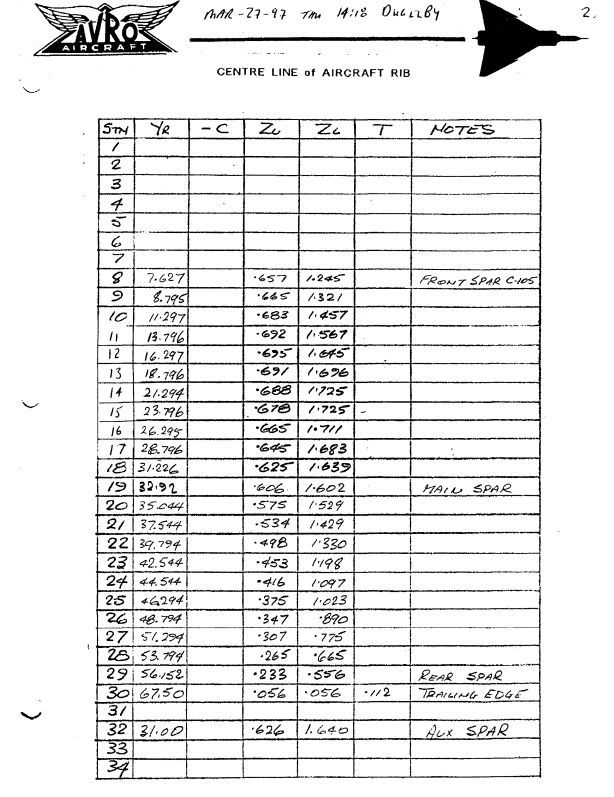 AVRO
AIRCRAFT
MAR-27-97 THU 14:18 2.
CENTRE LINE of AIRCRAFT RIB
STN YR -C ZU ZL T NOTES
1
2
3
4
5
6
7
8 7.627 .657 1.245 FRONT SPAR C-105
9 8.795 .665 1.321
10 11.297 .683 1.457
11 13.796 .692 1.567
12 16.297 .695 1.645
13 18.796 .691 1.696
14 21.294 .688 1.725
15 23.796 .678 1.725 -
16 26.295 .665 1.711
17 28.796 .645 1.683
18 31.226 .625 1.639
19 32.92 .606 1.602 MAIN SPAR
20 35.044 .575 1.529
21 37.544 .534 1.429
22 39.794 .498 1.330
23 42.544 .453 1.198
24 44.544 .416 1.097
25 46.294 .375 1.023
26 48.794 .347 .890
27 51.294 .307 .775
28 53.794 .265 .665
29 56.152 .233 .556 REAR SPAR
30 67.50 .056 .056 .112 TRAILING EDGE
31
32 31.00 .626 1.640 AUX SPAR
33
34